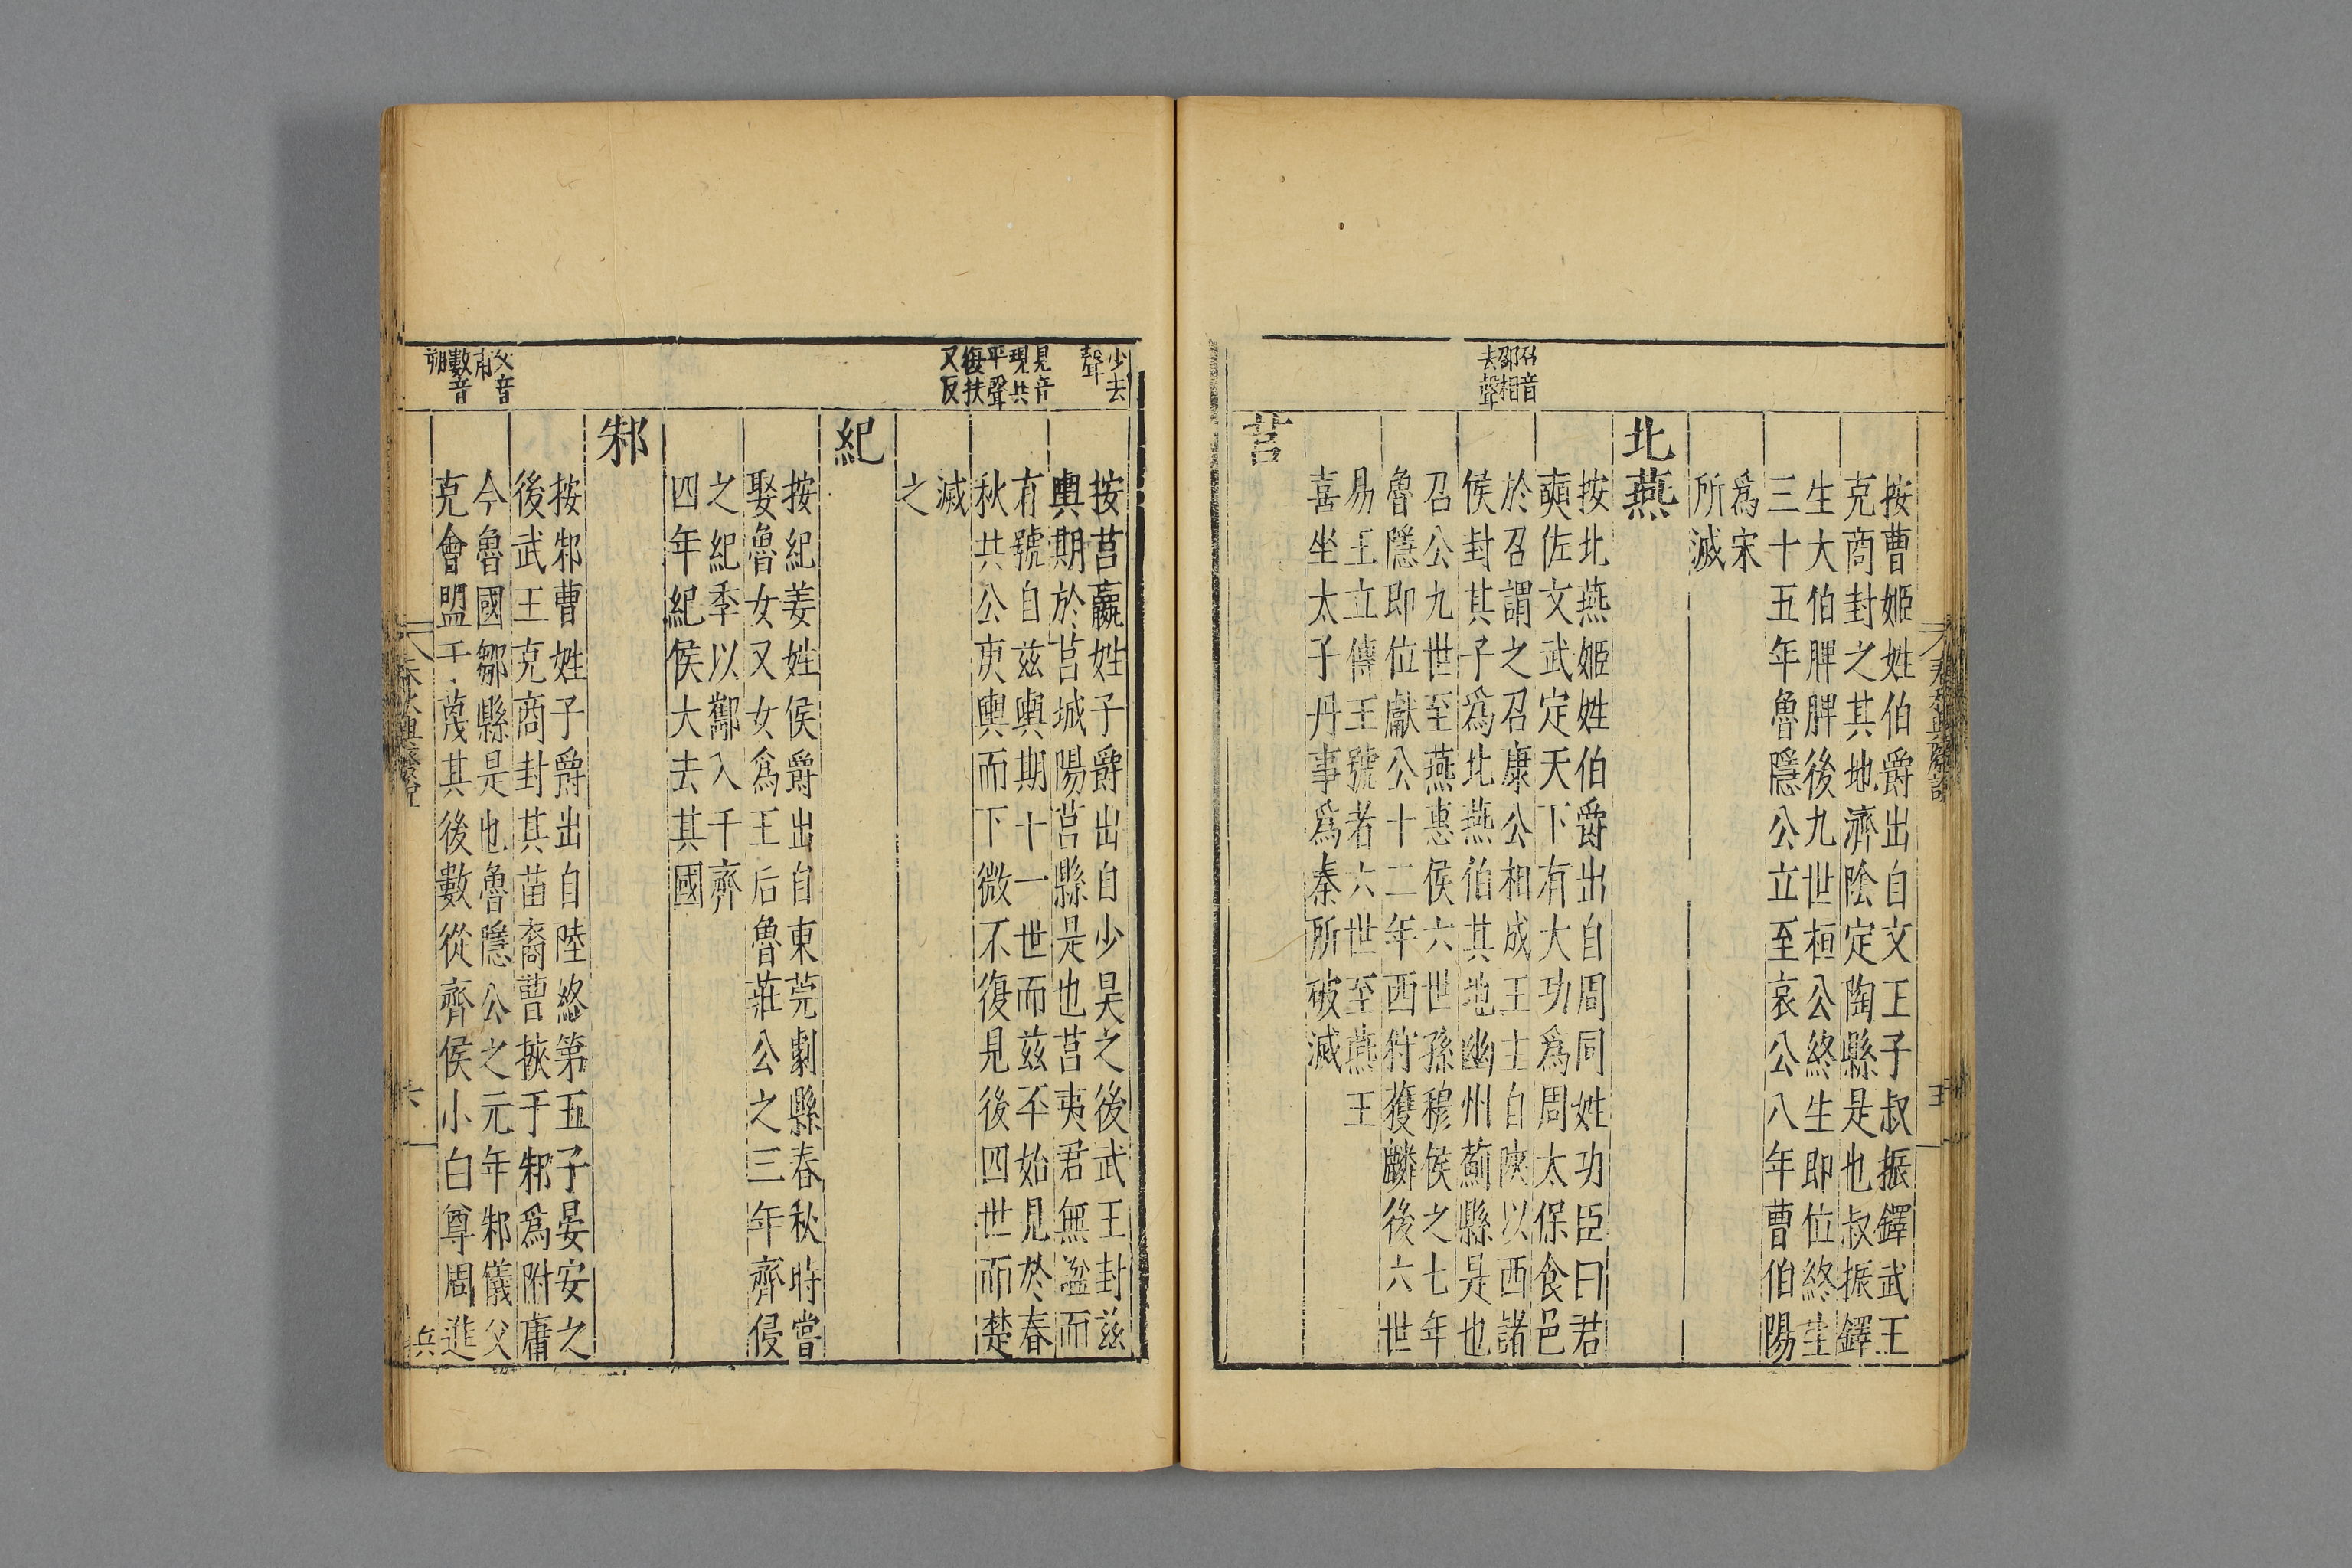 按曹姬姓伯爵出自文王子叔振鐸武王
克商封之其地濟陰定陶縣是也叔振鐸
生大伯脾脾後九世桓公終生即位終生
三十五年魯隱公立至哀公八年曹伯陽
爲宋
所滅
北燕
按北燕姬姓伯爵出自周同姓功臣曰君
奭佐文武定天下有大功爲周太保食邑
於召謂之召康公相成王主自陜以西諸
侯封其子爲北燕伯其地幽州薊縣是也
召公九世至燕惠侯六世孫穆侯之七年
魯隱即位獻公十二年西狩獲麟後六世
易王立傳王號者六世至燕王
喜坐太子丹事爲秦所破滅
莒
召音
邵相
去聲
按莒嬴姓子爵出自少昊之後武王封兹
輿期於莒城陽莒縣是也莒夷君無謚而
有號自兹輿期十一世而兹丕始見於春
秋共公庚輿而下微不復見後四世而楚
滅
之
紀
按紀姜姓侯爵出自東莞劇縣春秋時嘗
娶魯女又女爲王后魯莊公之三年齊侵
之紀季以酅入于齊
四年紀侯大去其國
邾
按邾曹姓子爵出自陸終第五子晏安之
後武王克商封其苗裔曹挾于邾爲附庸
今魯國鄒縣是也魯隱公之元年邾儀父
克會盟于蔑其後數從齊侯小白尊周進
少去
聲
見音
現共
平聲
復扶
又反
父音
甫
數音
朔
六
兵